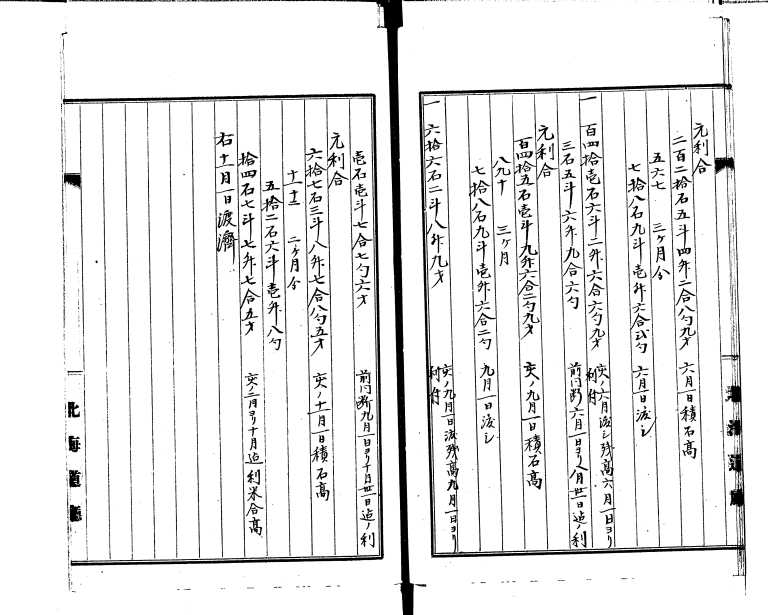 元利合
二百二拾石五斗四舛二合八勺九才 六月一日積石高
五六七 三ヶ月分
七拾八石九斗壱舛六合弐勺 六月一日渡シ
一 百四拾壱石六斗二舛六合六勺九才 亥ノ六月渡シ残高六月一日ヨリ利付
三石五斗六舛九合六勺 前同断六月一日ヨリ八月卅一日迄ノ利
元利合
百四拾五石壱斗九舛六合二勺九才 亥ノ九月一日積石高
八九十 三ヶ月
七拾八石九斗壱舛六合二勺 九月一日渡シ
一 六拾六石二斗八舛九才 亥ノ九月一日渡残高九月一日ヨリ利付
壱石壱斗七合七勺六才 前同断九月一日ヨリ十月卅一日迄ノ利
元利合
六拾七石三斗八舛七合八勺五才 亥ノ十一月一日積石高
十一十二 二ヶ月分
五拾二石六斗壱舛八勺
拾四石七斗七舛七合五才 亥ノ二月ヨリ十月迄利米合高
右十一月一日渡濟
北海道廳